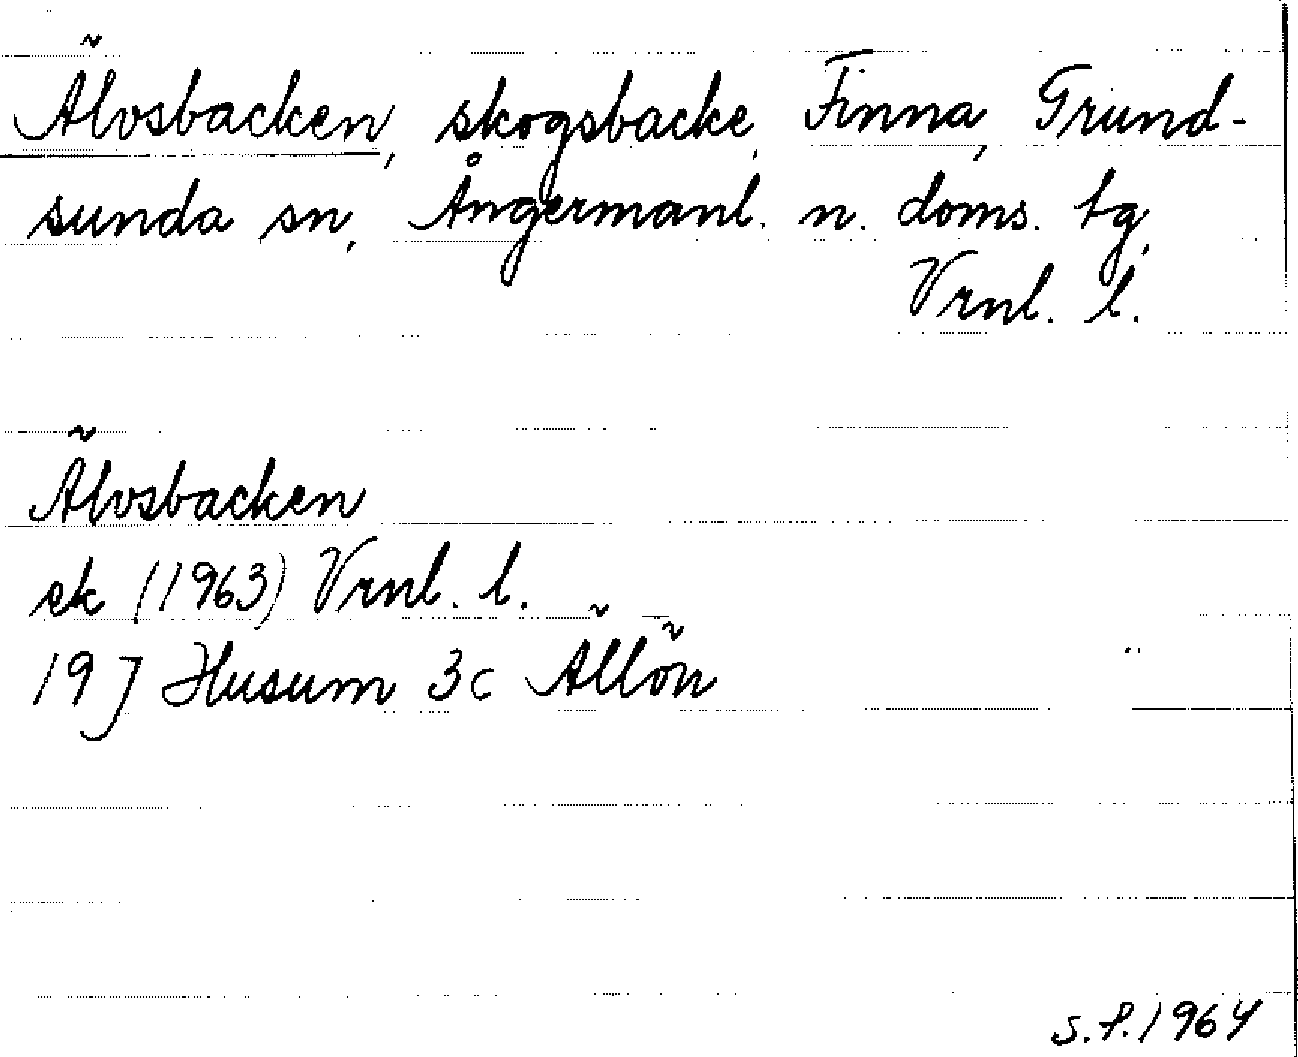 Älvsbacken, skogsbacke, Finna, Grund-
sunda sn, Ångermanl. n. doms. tg,
Vrnl. l.
Älvsbacken
ek (1963) Vrnl. l.
19 J Husum 3c Ällön
s.f. 1964